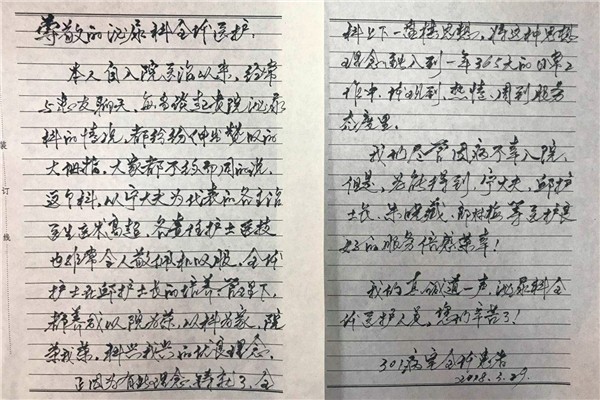 尊敬的泌尿科全体医护:
本人自入院医治以来,经常
与患友聊天,每当谈起贵院泌尿
科的情况,都拎扮伸出赞叹的
大拇指。大家都不约而同的说,
这个科,以宁大夫为代表的各主治
医生医术高超,各责任护士医技
也非常令人敬佩和叹服,全体
护士在邱护士长的培养、管理下,
都养成以院为荣,以科为家,院
荣我荣,科兴我兴的优良理念。
正因为有此理念,铸就了全
科上下一盘棋思想,将这种思想
理念融入到一年365天的日常工
作中,体现到,热情、周到服务
态度里。
我们尽管因病不幸入院,
但是,若能得到,宁大夫、邱护
士长、朱晓 等医护良
好的服务倍感荣幸!
我们真诚道一声,泌尿科全
体医护人员,您们辛苦了!
301病室全体患者
2018.3.29.
装订线